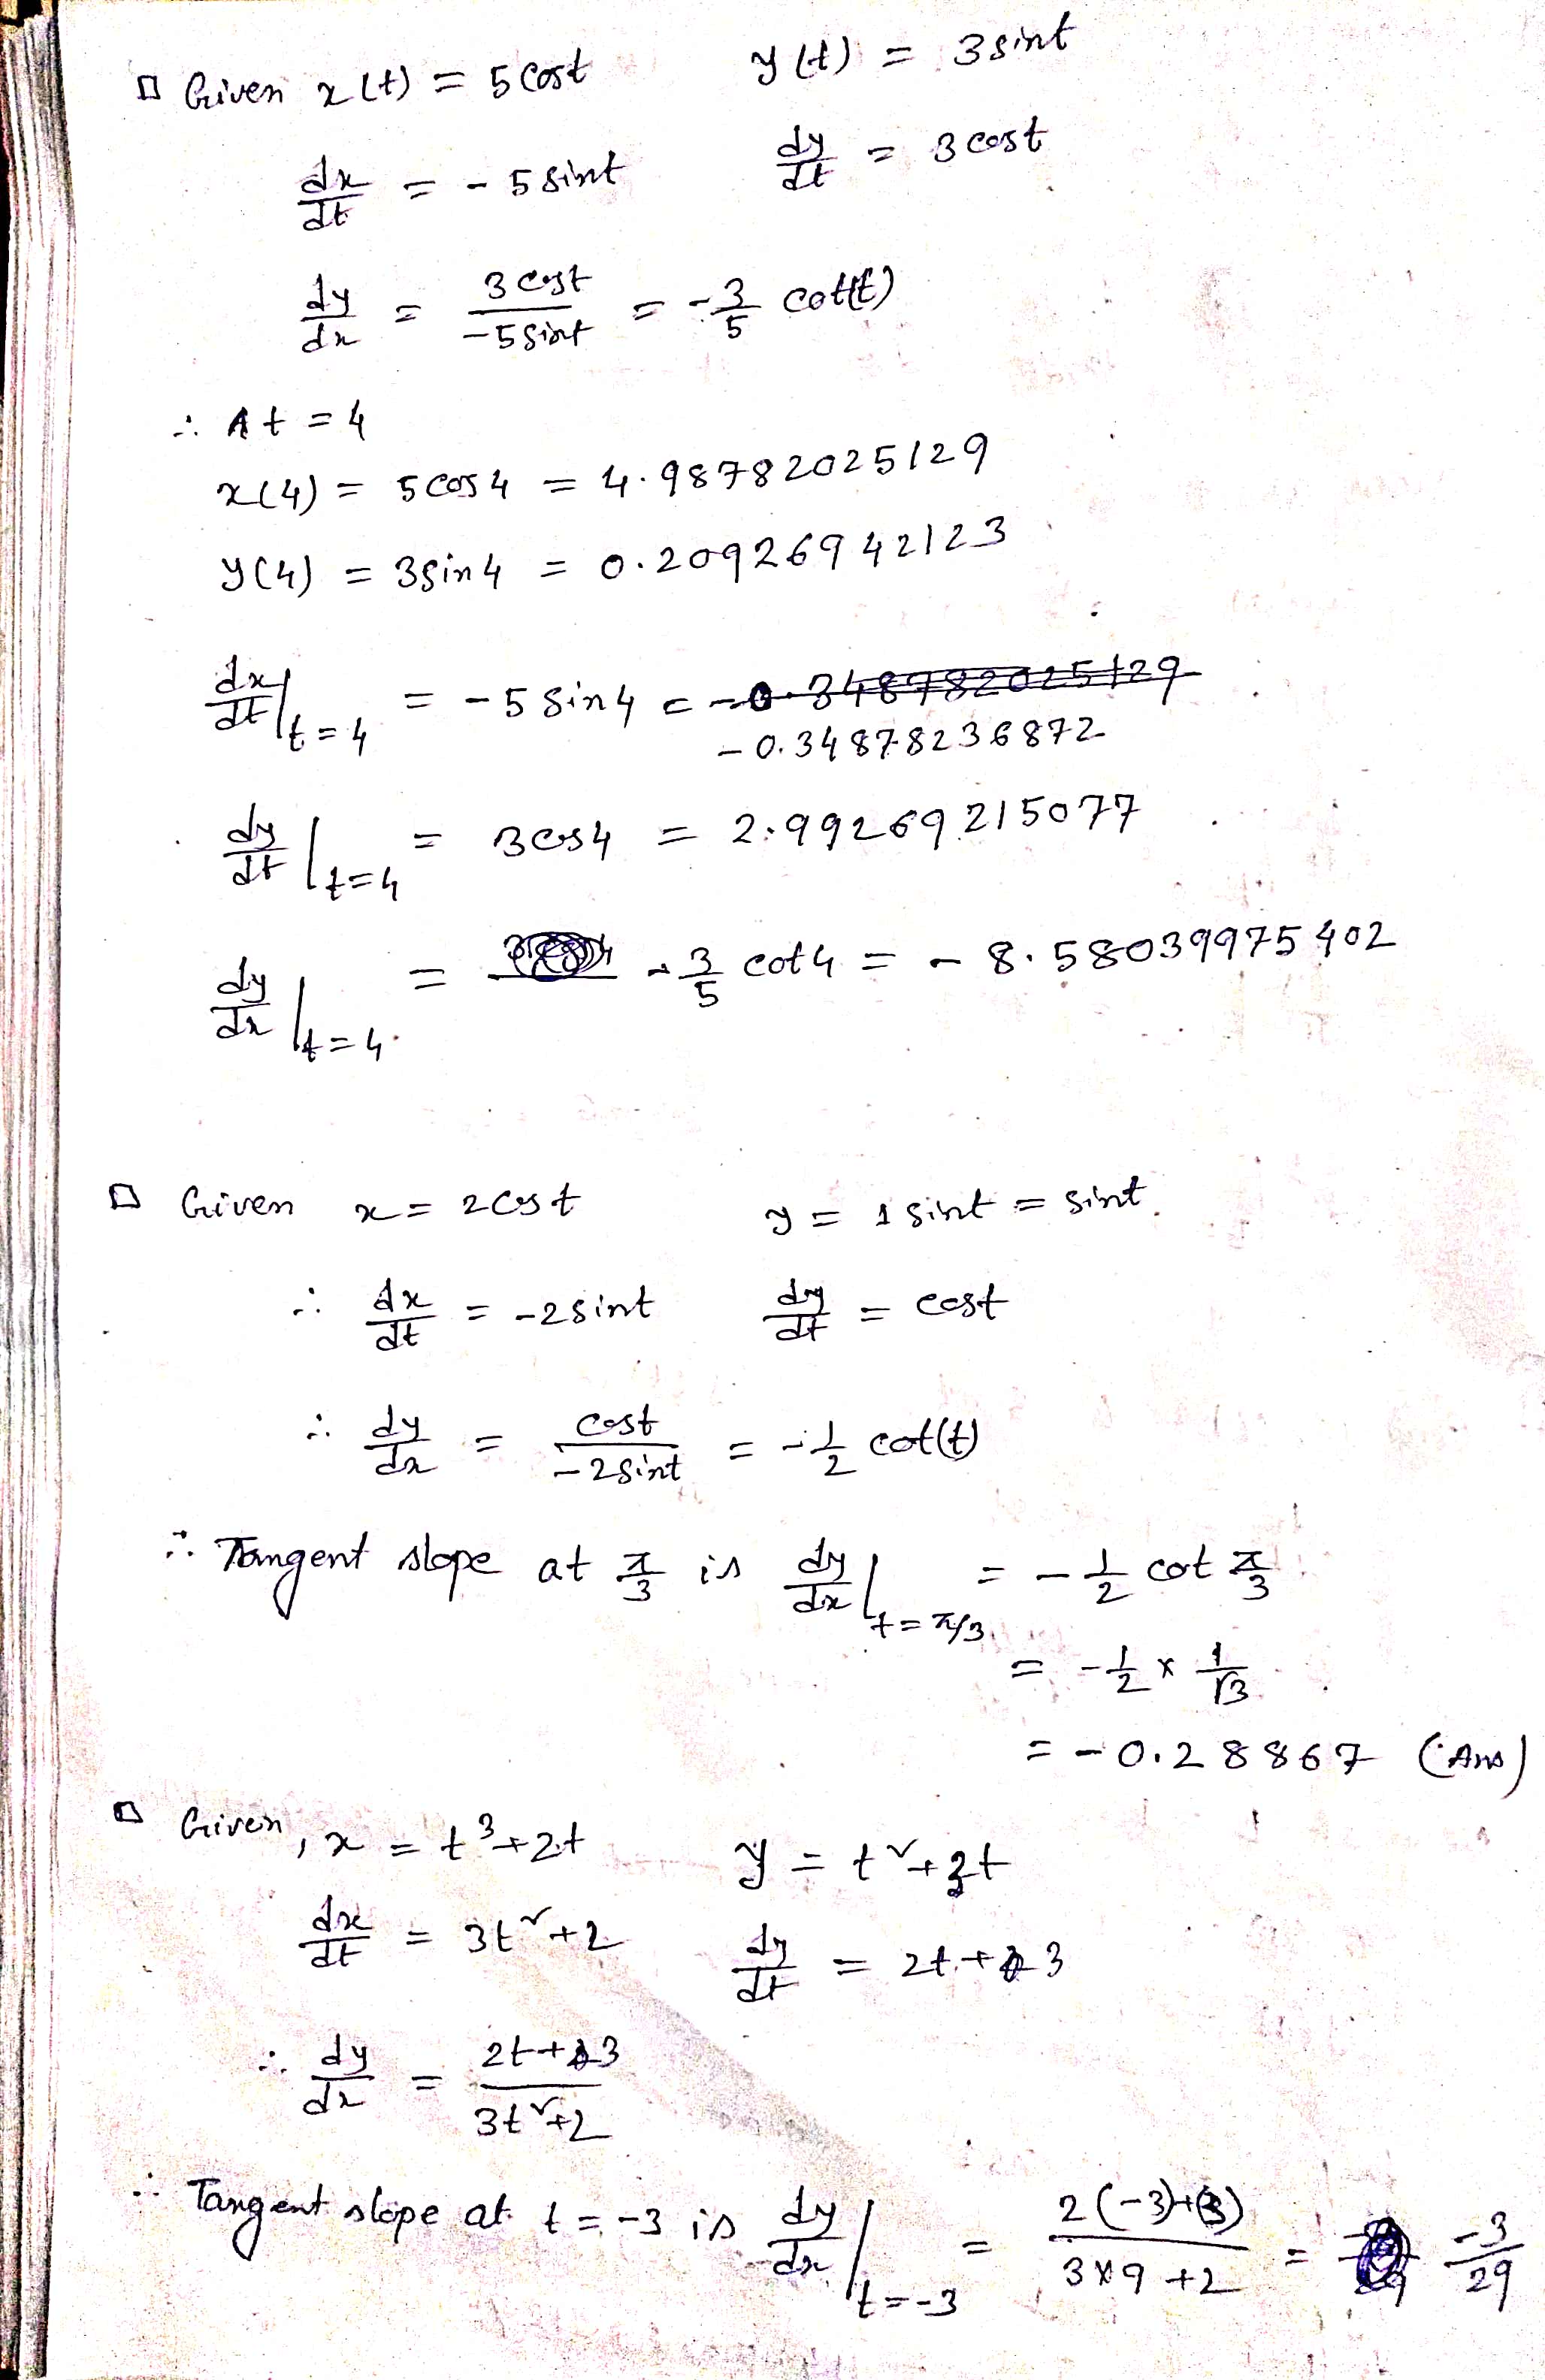 Given x(t) = 5 cost y(t) = 3 sint
dx/dt = - 5 sint dy/dt = 3 cost
dy/dx = 3 cost / -5 sint = - 3/5 cot(t)
∴ At = 4
x(4) = 5 cos 4 = 4.98782025129
y(4) = 3 sin 4 = 0.20926942123
dx/dt |t=4 = - 5 sin 4 = -0.348782025129
-0.34878236872
dy/dt |t=4 = 3 cos 4 = 2.99269215077
dy/dx |t=4 = - 3/5 cot 4 = - 8.58039975402
Given x = 2 cos t y = 1 sint = sint.
∴ dx/dt = -2 sint dy/dt = cost
∴ dy/dx = cost / -2 sint = - 1/2 cot(t)
∴ Tangent slope at π/3 is dy/dx |t=π/3 = - 1/2 cot π/3
= - 1/2 × 1/√3
= - 0.28867 (Ans)
Given, x = t³+2t y = t²+3t
dx/dt = 3t²+2 dy/dt = 2t+3
∴ dy/dx = 2t+3 / 3t²+2
∴ Tangent slope at t = -3 is dy/dx |t=-3 = 2(-3)+(3) / 3×9+2 = -3/29